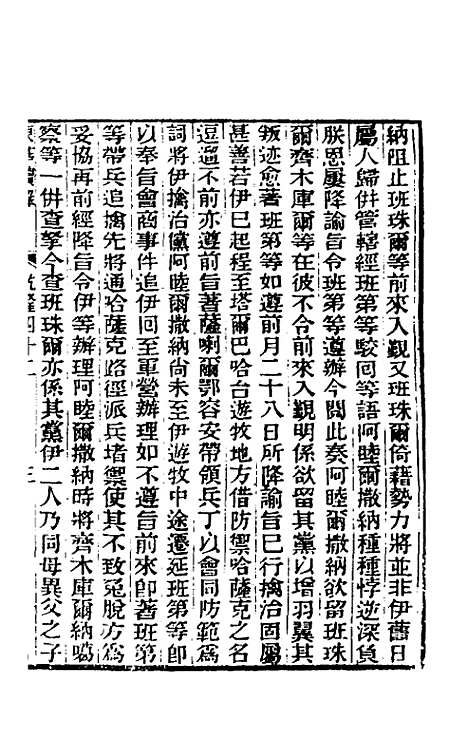 納阻止班珠爾等前來入覲又班珠爾倚藉勢力將並非伊舊日
屬人歸併管轄經班第等駁回等語阿睦爾撒納種種悖逆深負
朕恩屢降諭旨令班第等遵辦今閱此奏阿睦爾撒納欲留班珠
爾齊木庫爾等在彼不令前來入覲明係欲留其黨以增羽翼其
叛迹愈著班第等如遵前月二十八日所降諭旨已行擒治固屬
甚善若伊已起程至塔爾巴哈台遊牧地方借防禦哈薩克之名
逗遛不前亦遵前旨著薩喇爾鄂容安帶領兵丁以會同防範為
詞將伊擒治黨阿睦爾撒納尚未至伊遊牧中途遷延班第等卽
以奉旨會商事件追伊回至軍營辦理如不遵旨前來卽著班第
等帶兵追擒先將通哈薩克路徑派兵堵禦使其不致兔脫方為
妥協再前經降旨令伊等辦理阿睦爾撒納時將齊木庫爾納噶
察等一併查拏今查班珠爾亦係其黨伊二人乃同母異父之子